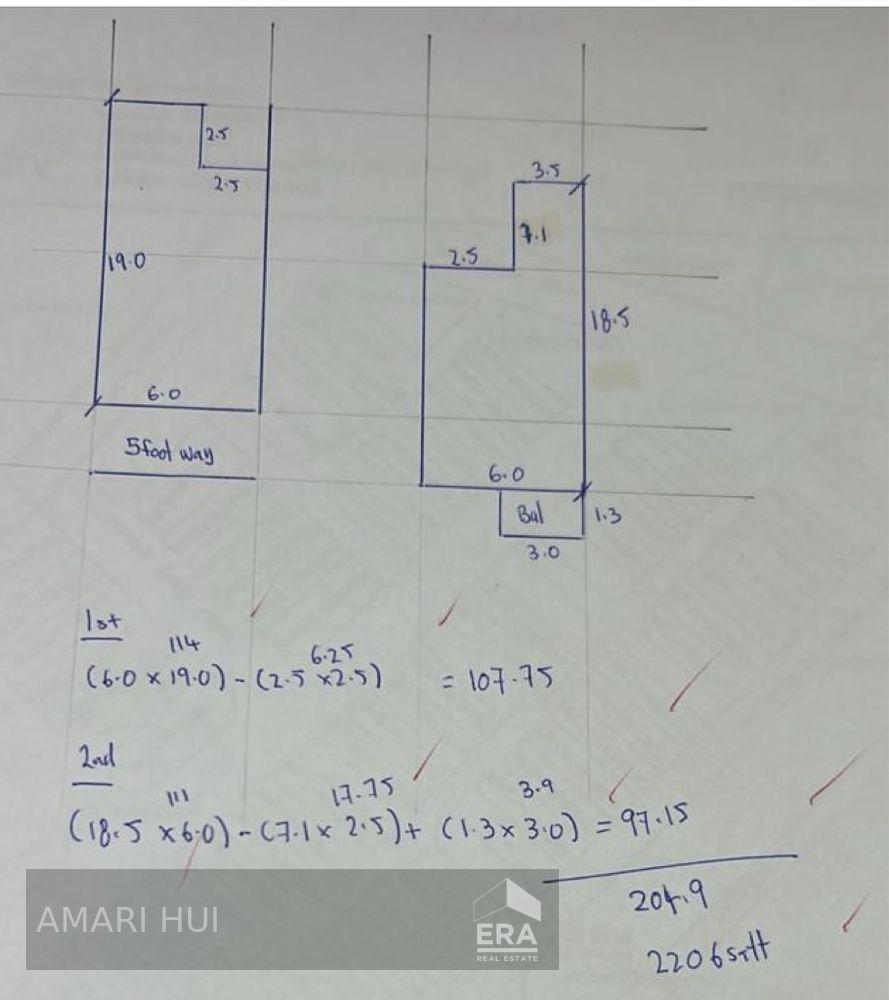 2.5
2.5
19.0
6.0
5foot way
3.5
7.1
2.5
18.5
6.0
Bal
1.3
3.0
1st
114
6.25
(6.0 x 19.0) - (2.5 x2.5) = 107.75
2nd
111
17.75
3.9
(18.5 x6.0) - (7.1 x 2.5) + (1.3 x 3.0) = 97.15
204.9
2206 sqft
AMARI HUI
ERA
REAL ESTATE